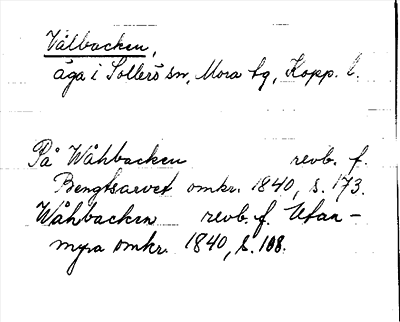 Vålbacken,
äga i Sollerö sn, Mora tg, Kopp. l.
På Wåhbacken revb. f.
Bengtsarvet omkr. 1840, s. 173.
Wåhbacken revb. f. Utan-
myra omkr. 1840, s. 188.